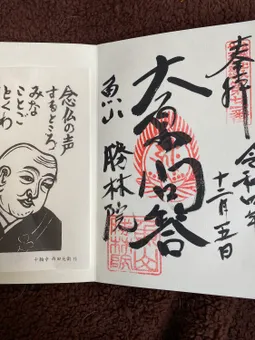 奉拝
令和四年
十二月五日
大原問答
魚山 勝林院
念仏の声
するところ
みな
ことご
とくわ